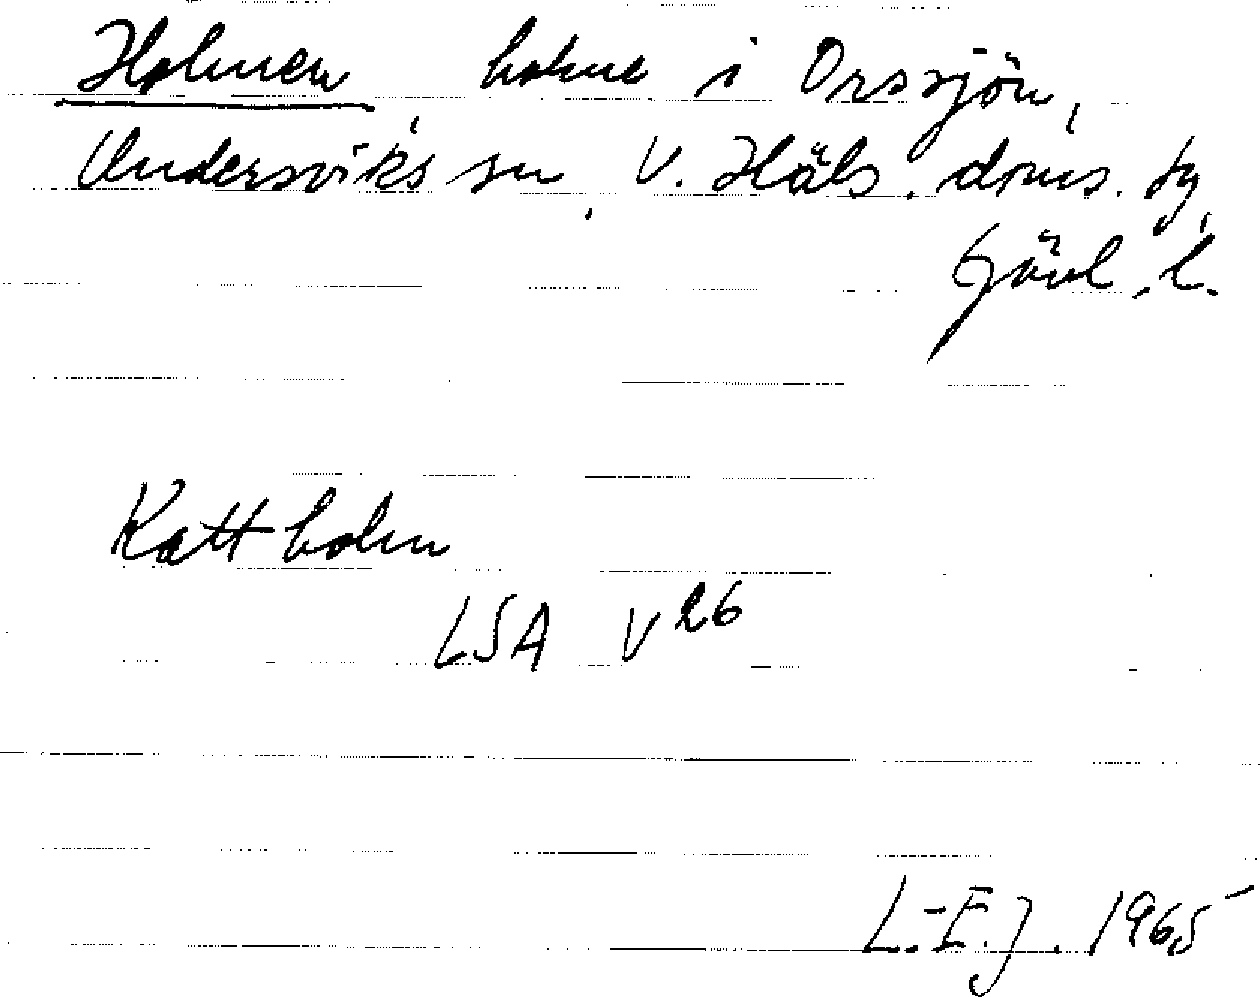 Holmen, holme i Orssjön,
Undersviks sn, V. Häls. doms. tg,
Gävl. l.
Kattholm
LSA V26
L.-E.J. 1965